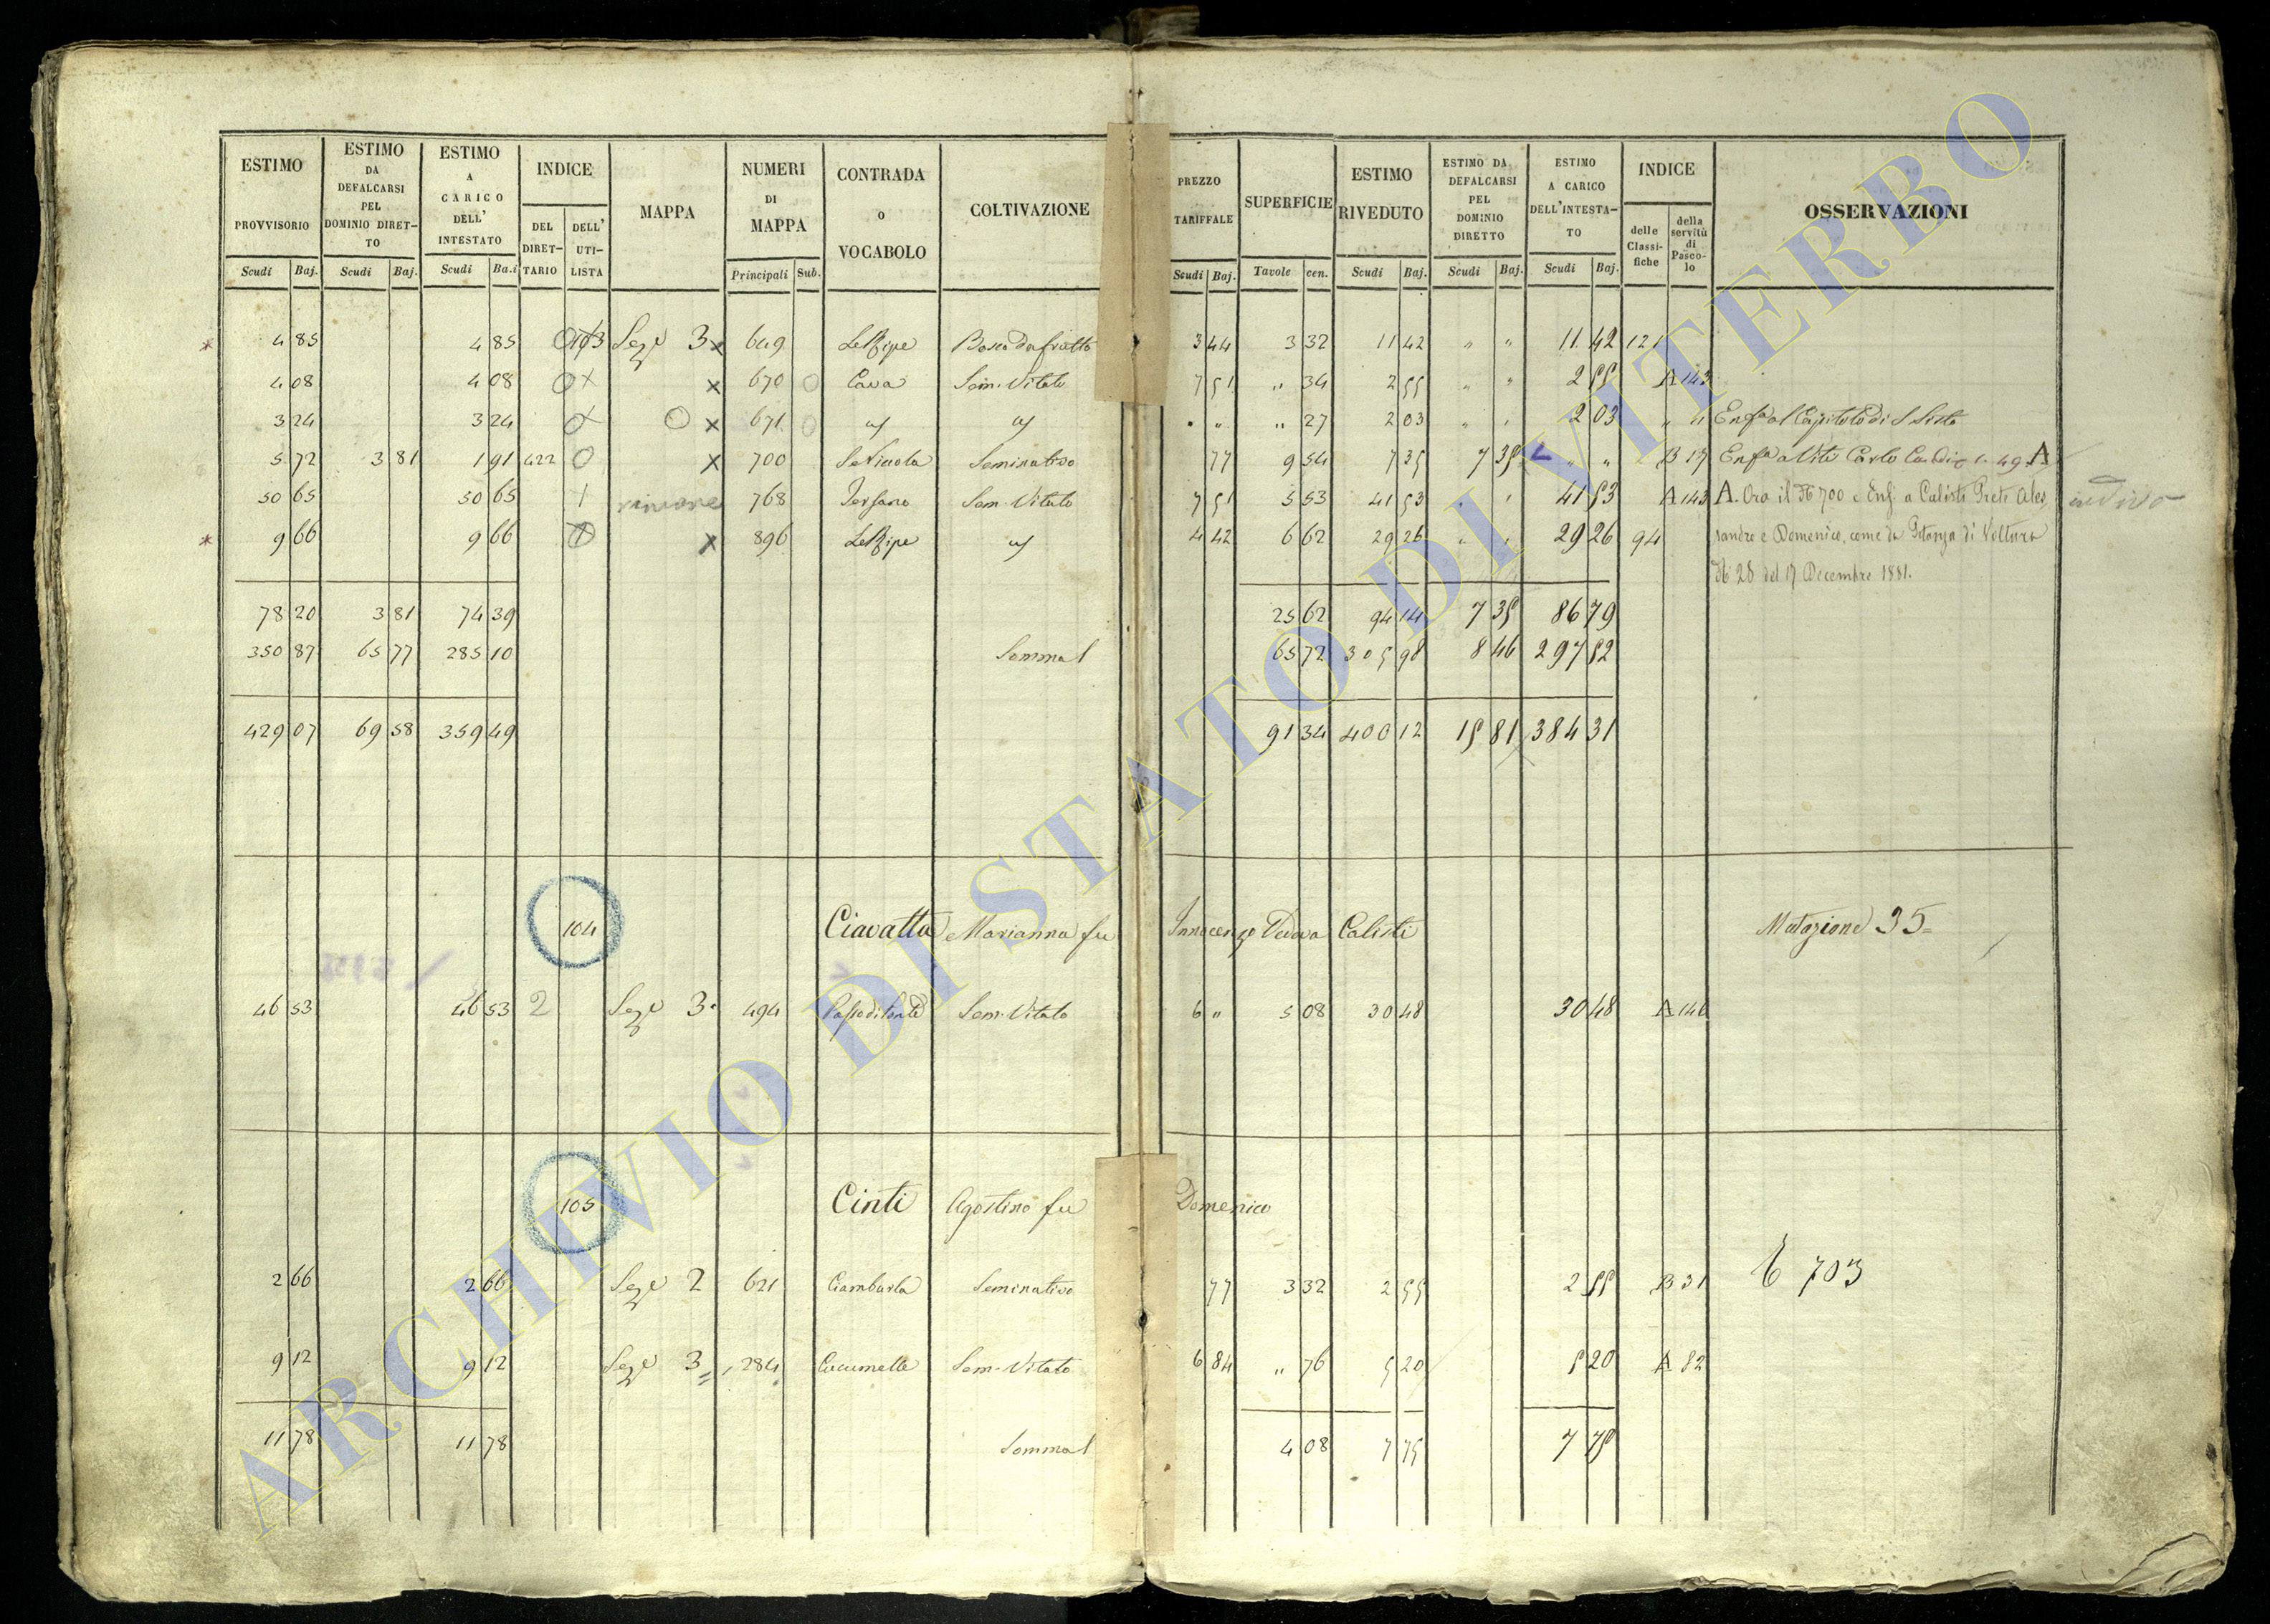 ESTIMO PROVVISORIO Scudi Baj.
ESTIMO DA DEFALCARSI PEL DOMINIO DIRET-TO Scudi Baj.
ESTIMO A CARICO DELL' INTESTATO Scudi Ba.i
INDICE DEL DIRET-TARIO DELL' UTI-LISTA
MAPPA
NUMERI DI MAPPA Principali Sub.
CONTRADA O VOCABOLO
COLTIVAZIONE
PREZZO TARIFFALE Scudi Baj.
SUPERFICIE Tavole cen.
ESTIMO RIVEDUTO Scudi Baj.
ESTIMO DA DEFALCARSI PEL DOMINIO DIRETTO Scudi Baj.
ESTIMO A CARICO DELL'INTESTA-TO Scudi Baj.
INDICE delle Classi-fiche della servitù di Pasco-lo
OSSERVAZIONI
4 85 4 85 103 Sez.e 3 x 649 Le Ripe Bosco da frutto 3 44 3 32 11 42 " " 11 42 121
4 08 4 08 x 670 Cava Sem. Vitato 7 51 " 34 2 55 " " 2 55 A 143
3 24 3 24 x 671 " " " 27 2 03 2 03 " " Enf.a al Capitolo di S. Sisto
5 72 3 81 1 91 422 x 700 S. Nicola Seminativo 77 9 54 7 35 7 35 " " B 17 Enf.a a Viti Carlo A
50 65 50 65 768 Sem. Vitato 7 51 5 53 41 53 41 53 A 143 A. Ora il N. 700 è Enf. a Calisti Prete Ales
9 66 9 66 x 896 Le Ripe 4 42 6 62 29 26 29 26 94 sandro e Domenico, come da Istanza di Voltura
N. 28 del 17 Decembre 1881.
78 20 3 81 74 39 25 62 94 14 7 35 86 79
350 87 65 77 285 10 Somma 65 72 305 98 8 46 297 52
429 07 69 58 359 49 91 34 400 12 15 81 384 31
104 Ciavatta Marianna fu Innocenzo Vedova Calisti Mutazione 35
46 53 46 53 2 Sez.e 3 494 Sem. Vitato 6 " 5 08 30 48 30 48 A 146
105 Cinti Agostino fu Domenico
2 66 2 66 Sez.e 2 621 Ciambarla Seminativo 77 3 32 2 55 2 55 B 31 703
9 12 9 12 Sez.e 3 284 Cucumelle Sem. Vitato 6 84 " 76 5 20 5 20 A 82
11 78 11 78 Somma 4 08 7 75 7 75
ARCHIVIO DI STATO DI VITERBO